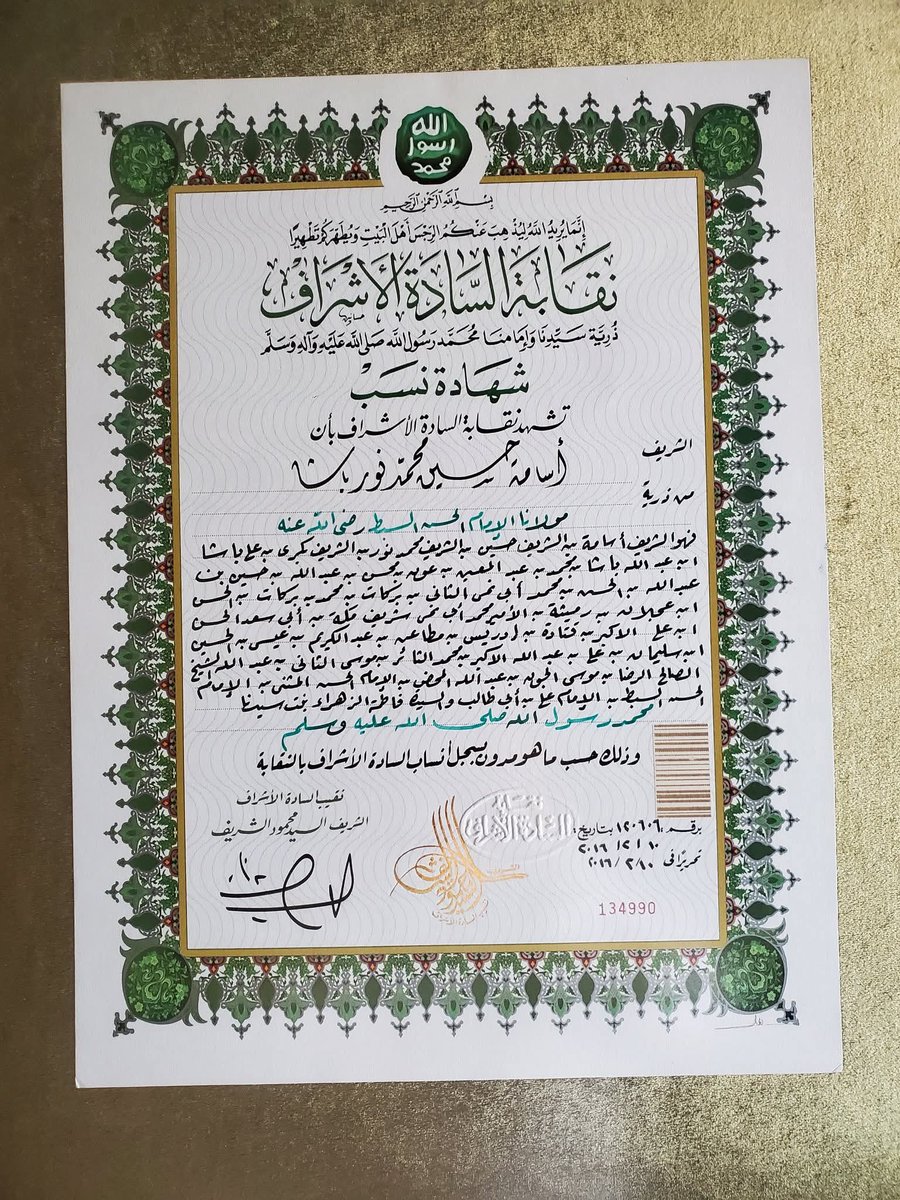 الله
رسول
محمد
بسم الله الرحمن الرحيم
إِنَّمَا يُرِيدُ اللَّهُ لِيُذْهِبَ عَنْكُمُ الرِّجْسَ أَهْلَ الْبَيْتِ وَيُطَهِّرَكُمْ تَطْهِيرًا
نقابة السادة الأشراف
ذُرِيَّة سَيِّدِنَا وَإِمَامِنَا مُحَمَّد رَسُول اللَّه صَلَّى اللَّه عَلَيْهِ وَآلِهِ وَسَلَّم
شهادة نسب
تشهد نقابة السادة الأشراف بأن
الشريف أسامة حسين محمد نور باشا
من ذرية
مولانا الإمام الحسن السبط رضي الله عنه
فهو الشريف أسامة بن الشريف حسين بن الشريف محمد نور بن الشريف بن علي باشا
ابن عبد الله باشا بن محمد بن عبد المعين بن عون بن محسن بن عبد الله بن حسين بن
عبد الله بن الحسن بن محمد أبي نمى الثاني بن بركات بن محمد بن بركات بن الحسن
ابن عجلان بن رميثة بن الأمير محمد أبي نمى شريف مكة بن أبي سعد الحسن
ابن علي الأكبر بن قتادة بن إدريس بن مطاعن بن عبد الكريم بن عيسى بن الحسين
ابن سليمان بن علي بن عبد الله الأكبر بن محمد الثائر بن موسى الثاني بن عبد الله الشيخ
الصالح الرضا بن موسى الجون بن عبد الله المحض بن الإمام الحسن المثنى بن الإمام
الحسن السبط بن الإمام علي بن أبي طالب والسيدة فاطمة الزهراء بنت سيدنا
محمد رسول الله صلى الله عليه وسلم
وذلك حسب ما هو مدون بسجل أنساب السادة الأشراف بالنقابة
نقيب السادة الأشراف
الشريف السيد محمود الشريف
برقم: ١٢٠٦٠٦ بتاريخ:
١٠/٢/٢٠١٦
تحريرًا في
134990